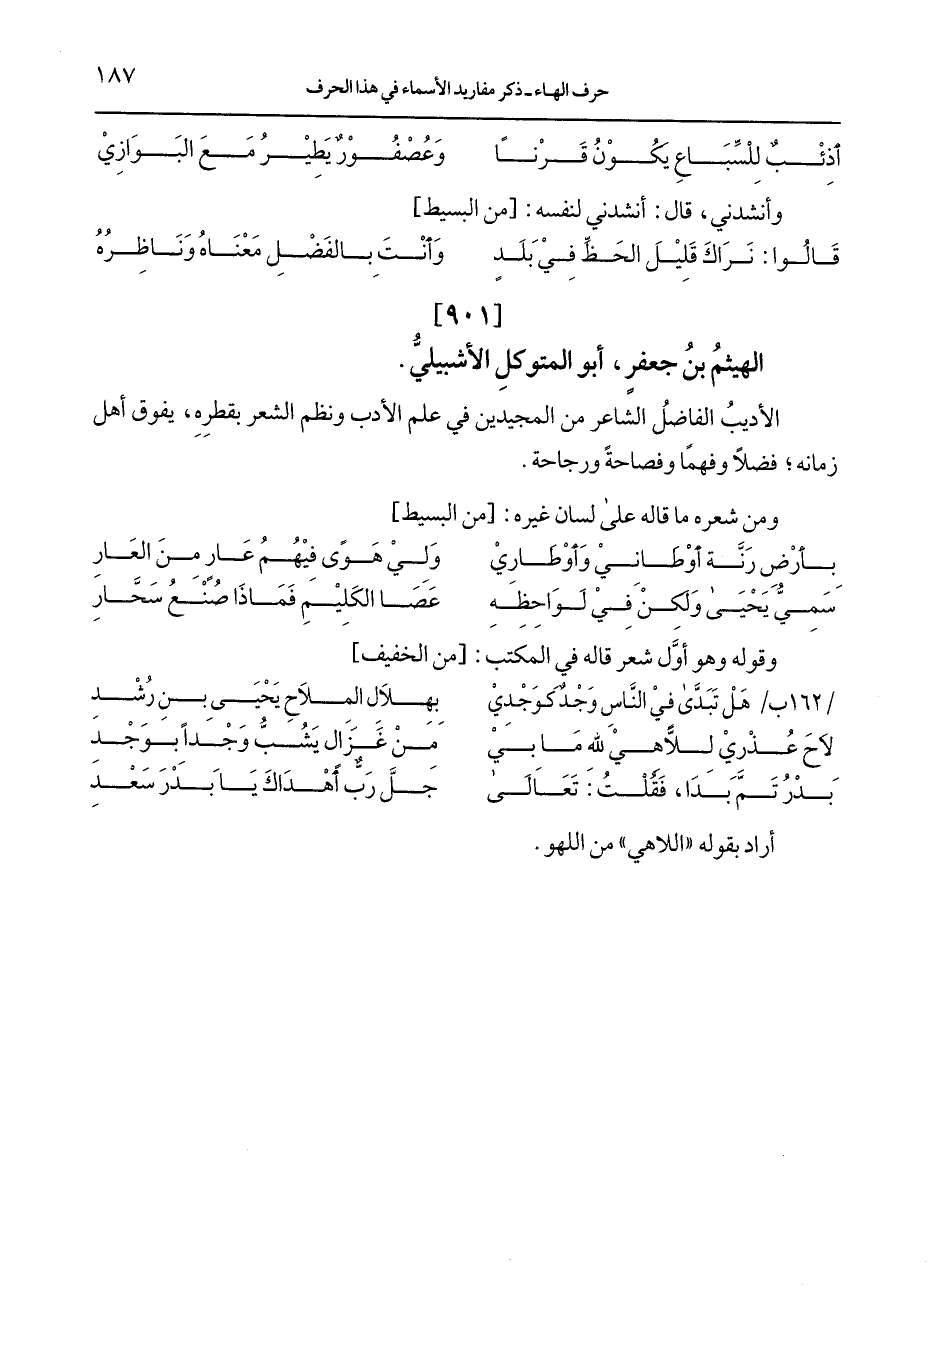 حرف الهاء ـ ذكر مفاريد الأسماء في هذا الحرف ١٨٧
أَذِئْبٌ لِلسِّبَاعِ يَكُوْنُ قَرْنًا وَعُصْفُوْرٌ يَطِيْرُ مَعَ البَوَازِيْ
وأنشدني، قال: أنشدني لنفسه: [من البسيط]
قَالُوا: نَرَاكَ قَلِيْلَ الحَظِّ فِيْ بَلَدٍ وَأَنْتَ بِالفَضْلِ مَعْنَاهُ وَنَاظِرُهُ
[٩٠١]
الهيثمُ بنُ جعفرٍ، أبو المتوكلِ الأشبيليُّ.
الأديبُ الفاضلُ الشاعر من المجيدين في علم الأدب ونظم الشعر بقطرِهِ، يفوق أهل
زمانه؛ فضلاً وفهمًا وفصاحةً ورجاحة.
ومن شعره ما قاله علىٰ لسان غيره: [من البسيط]
بِأَرْضِ رَنَّةَ أَوْطَانِيْ وَأَوْطَارِيْ وَلِيْ هَوًى فِيْهُمُ عَارٍ مِنَ العَارِ
سَمِيُّ يَحْيَىٰ وَلَكِنْ فِيْ لَوَاحِظِهِ عَصَا الكَلِيْمِ فَمَاذَا صُنْعُ سَحَّارِ
وقوله وهو أوَّل شعر قاله في المكتب: [من الخفيف]
/١٦٢ب/ هَلْ تَبَدَّىٰ فِيْ النَّاسِ وَجْدٌ كَوَجْدِيْ بِهِلَالِ المِلَاحِ يَحْيَى بِنِ رُشْدِ
لَاحَ عُذْرِيْ لِلَّاهِيْ لله مَا بِيْ مِنْ غَزَالٍ يَشُبُّ وَجْداً بِوَجْدِ
بَدْرُ تَمٍّ بَدَا، فَقُلْتُ: تَعَالَىٰ جَلَّ رَبٌّ أَهْدَاكَ يَا بَدْرَ سَعْدِ
أراد بقوله «اللاهي» من اللهو.